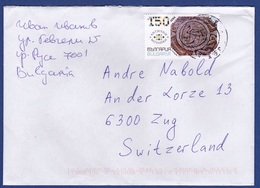 Иван Иванов
гр. Русе 7001
Bulgaria
1.50
БЪЛГАРИЯ
BULGARIA
Andre Nabold
An der Lorze 13
6300 Zug
Switzerland